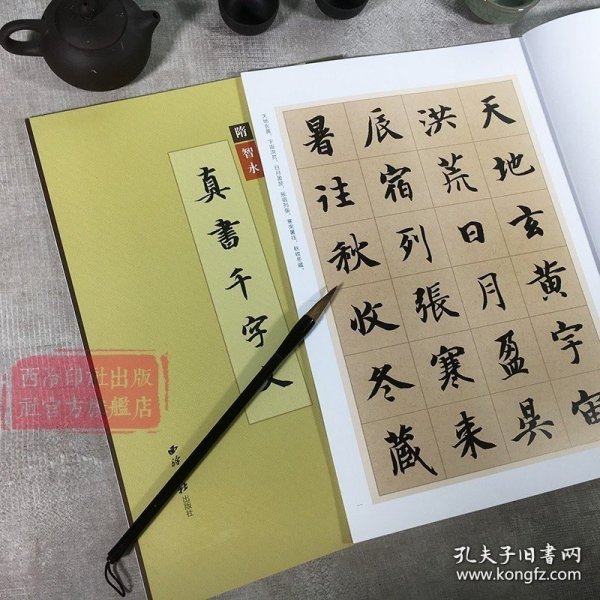 隋
智永
真書千字文
西泠印社出版社
天地玄黄，宇宙洪荒。日月盈昃，辰宿列张。寒来暑往，秋收冬藏。
天地玄黄宇宙
洪荒日月盈昃
辰宿列張寒来
暑往秋收冬藏
西泠印社出版
社官方旗艦店
孔夫子旧书网
www.kongfz.com